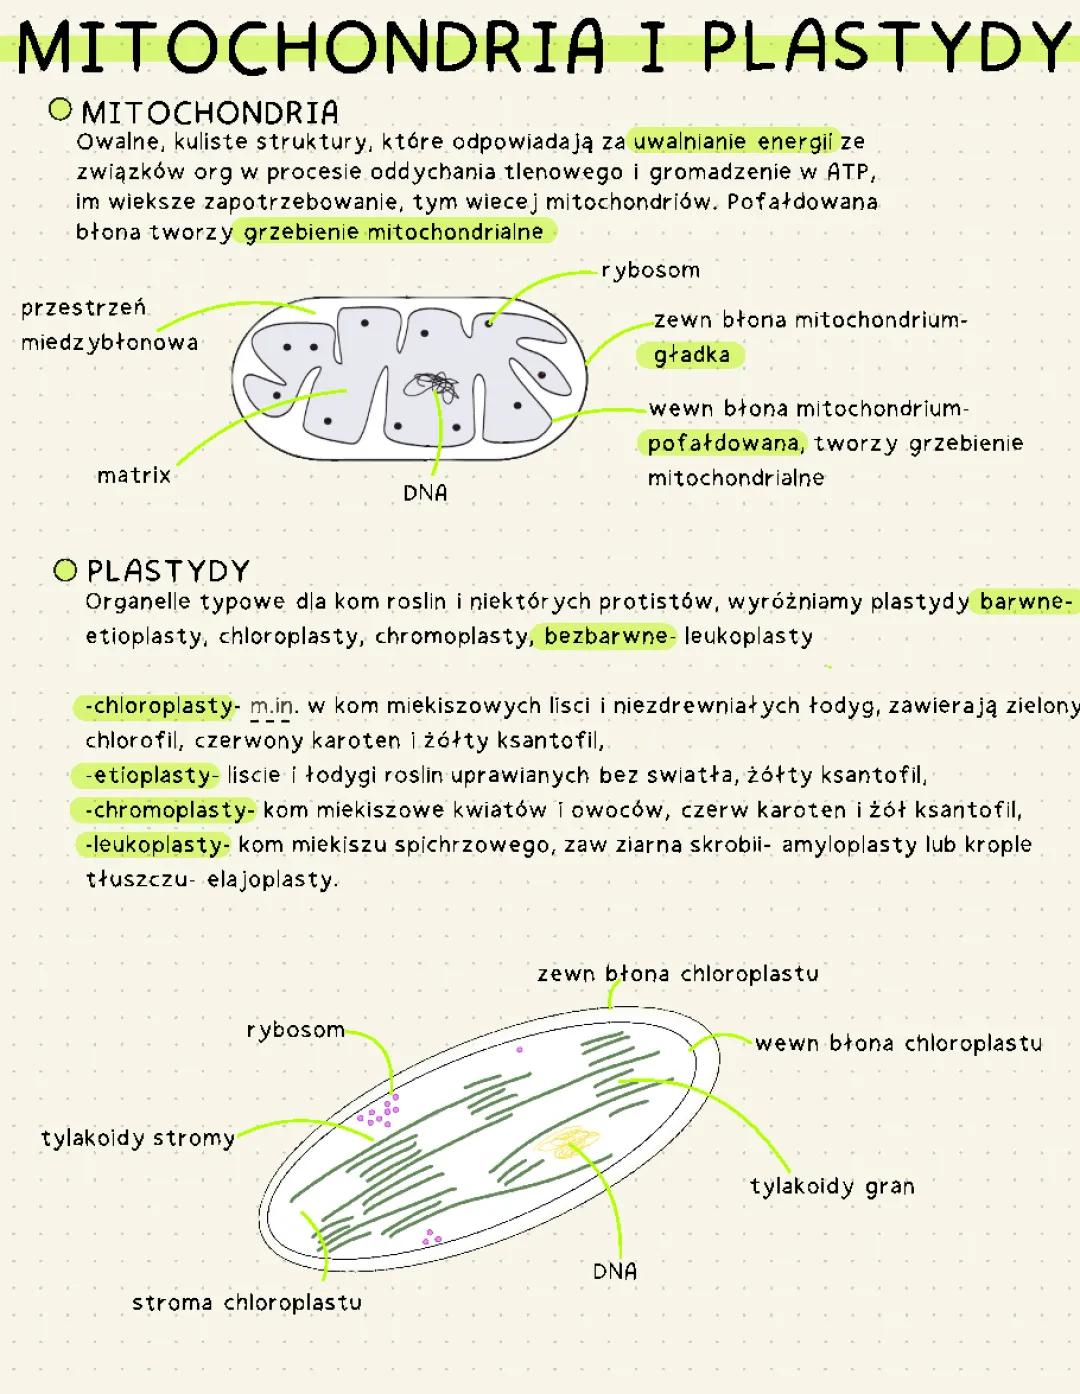 MITOCHONDRIA I PLASTYDY
MITOCHONDRIA
Owalne, kuliste struktury, które odpowiadają za uwalnianie energii ze
związków org w procesie oddychania tlenowego i gromadzenie w ATP,
im wieksze zapotrzebowanie, tym wiecej mitochondriów. Pofałdowana
błona tworzy grzebienie mitochondrialne
rybosom
przestrzeń
miedzybłonowa
zewn błona mitochondrium-
gładka
wewn błona mitochondrium-
pofałdowana, tworzy grzebienie
mitochondrialne
matrix
DNA
PLASTYDY
Organelle typowe dla kom roslin i niektórych protistów, wyróżniamy plastydy barwne-
etioplasty, chloroplasty, chromoplasty, bezbarwne- leukoplasty
-chloroplasty- m.in. w kom miekiszowych lisci i niezdrewniałych łodyg, zawierają zielony
chlorofil, czerwony karoten i żółty ksantofil,
-etioplasty- liscie i łodygi roslin uprawianych bez swiatła, żółty ksantofil,
-chromoplasty- kom miekiszowe kwiatów i owoców, czerw karoten i żół ksantofil,
-leukoplasty- kom miekiszu spichrzowego, zaw ziarna skrobii- amyloplasty lub krople
tłuszczu- elajoplasty.
zewn błona chloroplastu
rybosom
wewn błona chloroplastu
tylakoidy stromy
tylakoidy gran
DNA
stroma chloroplastu